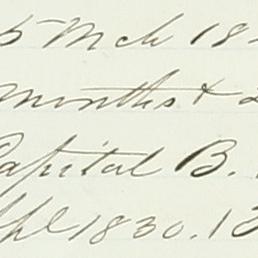 5 Mch 18
months &
Capital B.
Apl 1830. 13